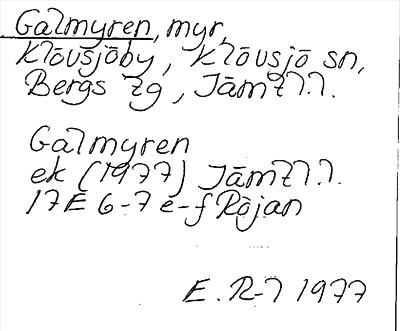 Galmyren, myr,
Klövsjöby, Klövsjö sn,
Bergs tg, Jämtl.
Galmyren
ek (1977) Jämtl.
17E 6-7 e-f Röjan
E. R-l 1977